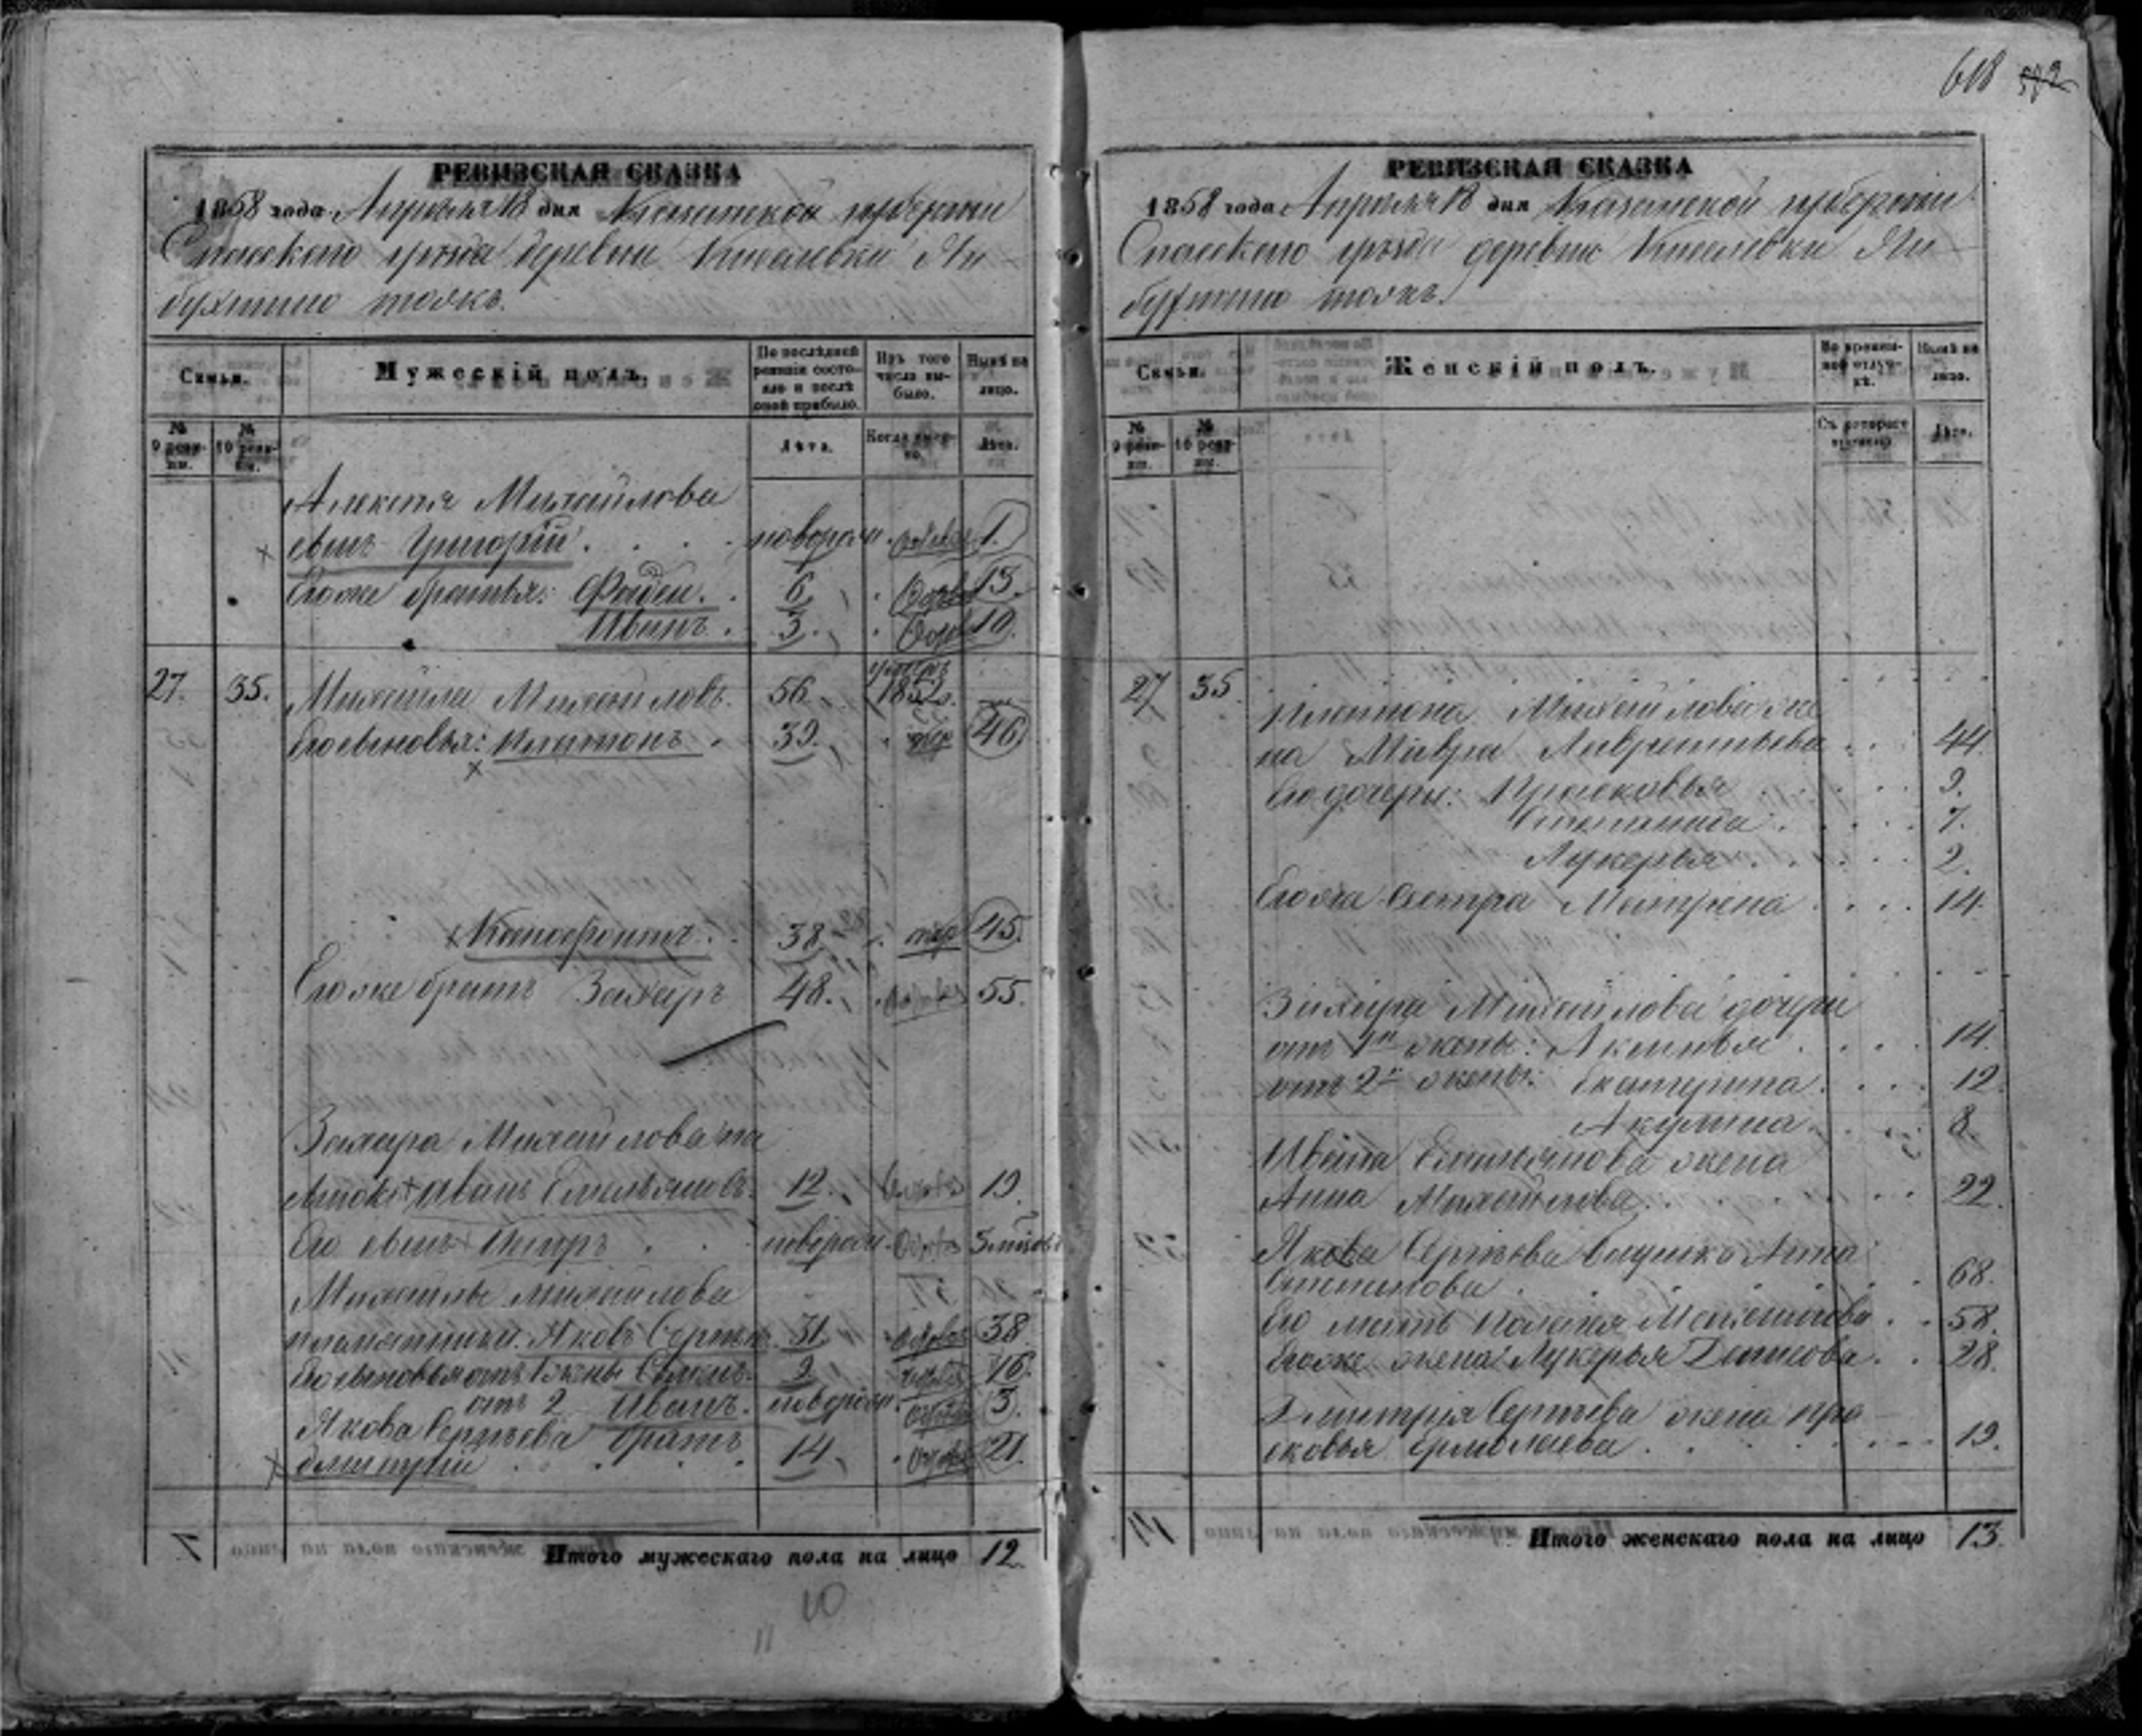 618 592
РЕВИЗСКАЯ СКАЗКА
1858 года Апреля 18 дня Казанской губернiи
Спасскаго уѣзда деревни Киселевки Яи-
бухтино тожъ.
Семьи.
Мужескiй полъ.
По послѣдней ревизiи состояло и послѣ оной прибыло.
Изъ того числа выбыло.
Нынѣ на лицо.
№ 9 ревизiи.
№ 10 ревизiи.
Лѣта.
Когда именно.
Лѣта.
Алексѣя Михайлова
сынъ Григорiй . . . . новорож. 1.
Его же братья: Фадей . 6. 13.
Иванъ . 3. 10.
27. 35. Михайла Михайловъ. 56. 1852.
Его сыновья: Платонъ . 39. 46
Ксенофонтъ . 38. 45.
Его же братъ Захаръ 48. 55.
Захара Михайлова па
сынокъ Иванъ Емельяновъ. 12. 19.
Его сынъ Петръ . . новорож.
Михайлы Михайлова
племянники Яковъ Сергѣевъ 31. 38
Его сыновья отъ 1 жены Семенъ. 9. 16.
отъ 2 Иванъ. новорож. 3.
Якова Сергѣева братъ
Дмитрiй . . . 14. 21.
Итого мужескаго пола на лицо 12
10
11
РЕВИЗСКАЯ СКАЗКА
1858 года Апреля 18 дня Казанской губернiи
Спасскаго уѣзда деревни Киселевки Яи-
бухтино тожъ.
Семьи.
Женскiй полъ.
Во временной отлучкѣ.
Нынѣ на лицо.
№ 9 ревизiи.
№ 10 ревизiи.
Съ котораго времени.
Лѣта.
27 35 Платона Михайлова же
на Мавра Лаврентьева . . . 44.
Его дочери: Прасковья . . . 9.
Степанида . . . 7.
Лукерья . . . 2.
Его же сестра Матрена . . . 14.
Захара Михайлова дочери
отъ 1й жены: Аксинья . . . 14.
отъ 2й жены: Екатерина . . . 12.
Акулина . . . 8.
Ивана Емельянова жена
Анна Михайлова . . . 22.
Якова Сергѣева бабушка Анна
Степанова . . . 68.
Его мать Пелагея . . 58.
Его же жена Лукерья Денисова . . 28.
Дмитрiя Сергѣева жена Пра
сковья Ермолаева . . . 19.
Итого женскаго пола на лицо 13.